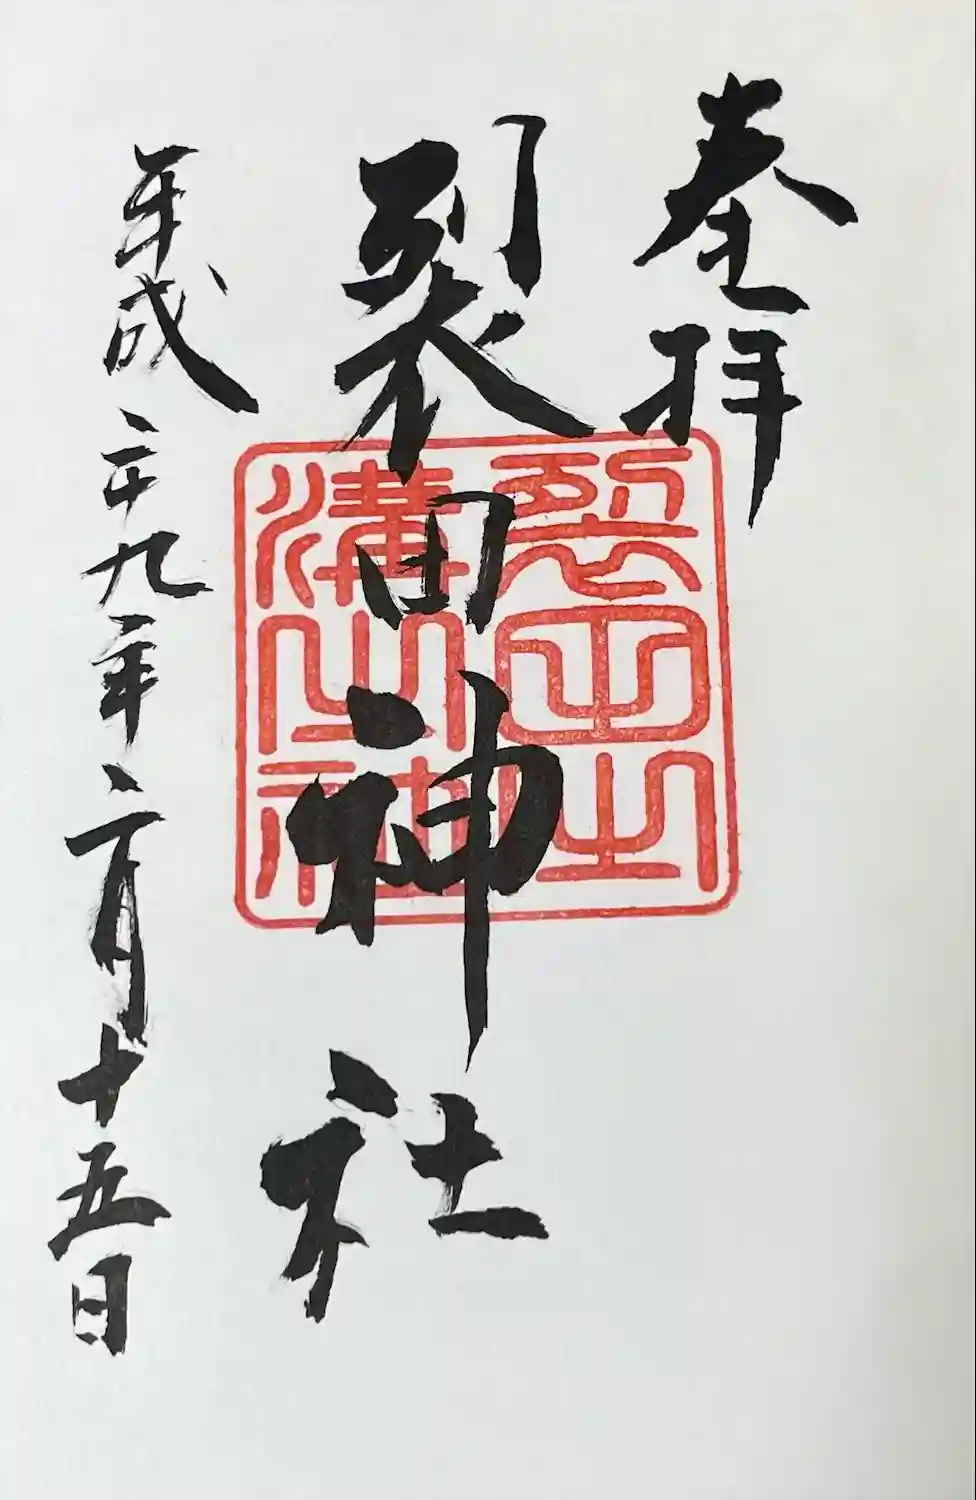 奉拝
裂田神社
平成二十九年二月十五日
裂田之
溝之